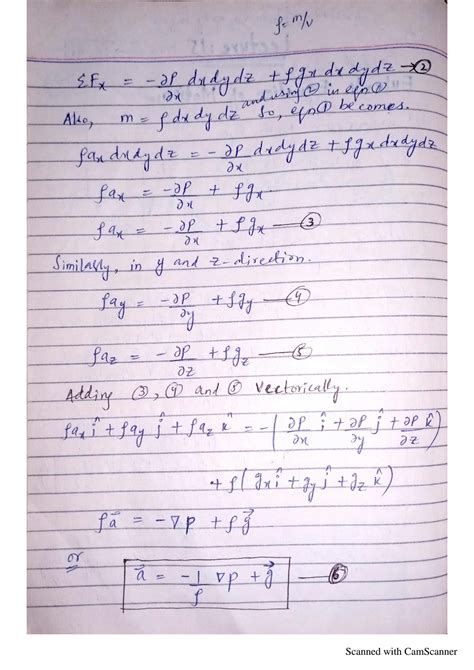 ρ = m/v
ΣFx = -∂P/∂x dxdydz + ρgx dxdydz → ②
and using ② in eqn ①
Also, m = ρ dxdydz So, eqn ① becomes.
ρax dxdydz = -∂P/∂x dxdydz + ρgx dxdydz
ρax = -∂P/∂x + ρgx
ρax = -∂P/∂x + ρgx — ③
Similarly, in y and z-direction.
ρay = -∂P/∂y + ρgy — ④
ρaz = -∂P/∂z + ρgz — ⑤
Adding ③, ④ and ⑤ Vectorically.
ρax î + ρay ĵ + ρaz k̂ = -(∂P/∂x î + ∂P/∂y ĵ + ∂P/∂z k̂)
+ ρ(gx î + gy ĵ + gz k̂)
ρa⃗ = -∇p + ρg⃗
or
a⃗ = -1/ρ ∇p + g⃗ — ⑥
Scanned with CamScanner